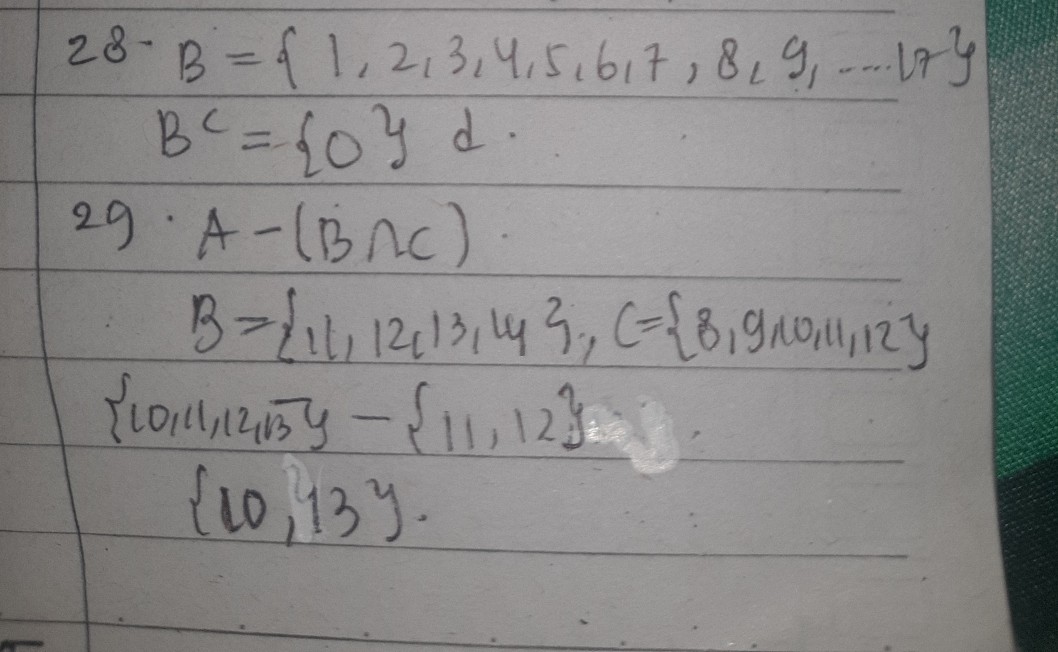 28- B = { 1, 2, 3, 4, 5, 6, 7, 8, 9, ..... 17 }
B^c = {0} d.
29. A - (B ∩ C)
B = {11, 12, 13, 14}, C = {8, 9, 10, 11, 12}
{10, 11, 12, 13} - {11, 12}
{10, 13}.